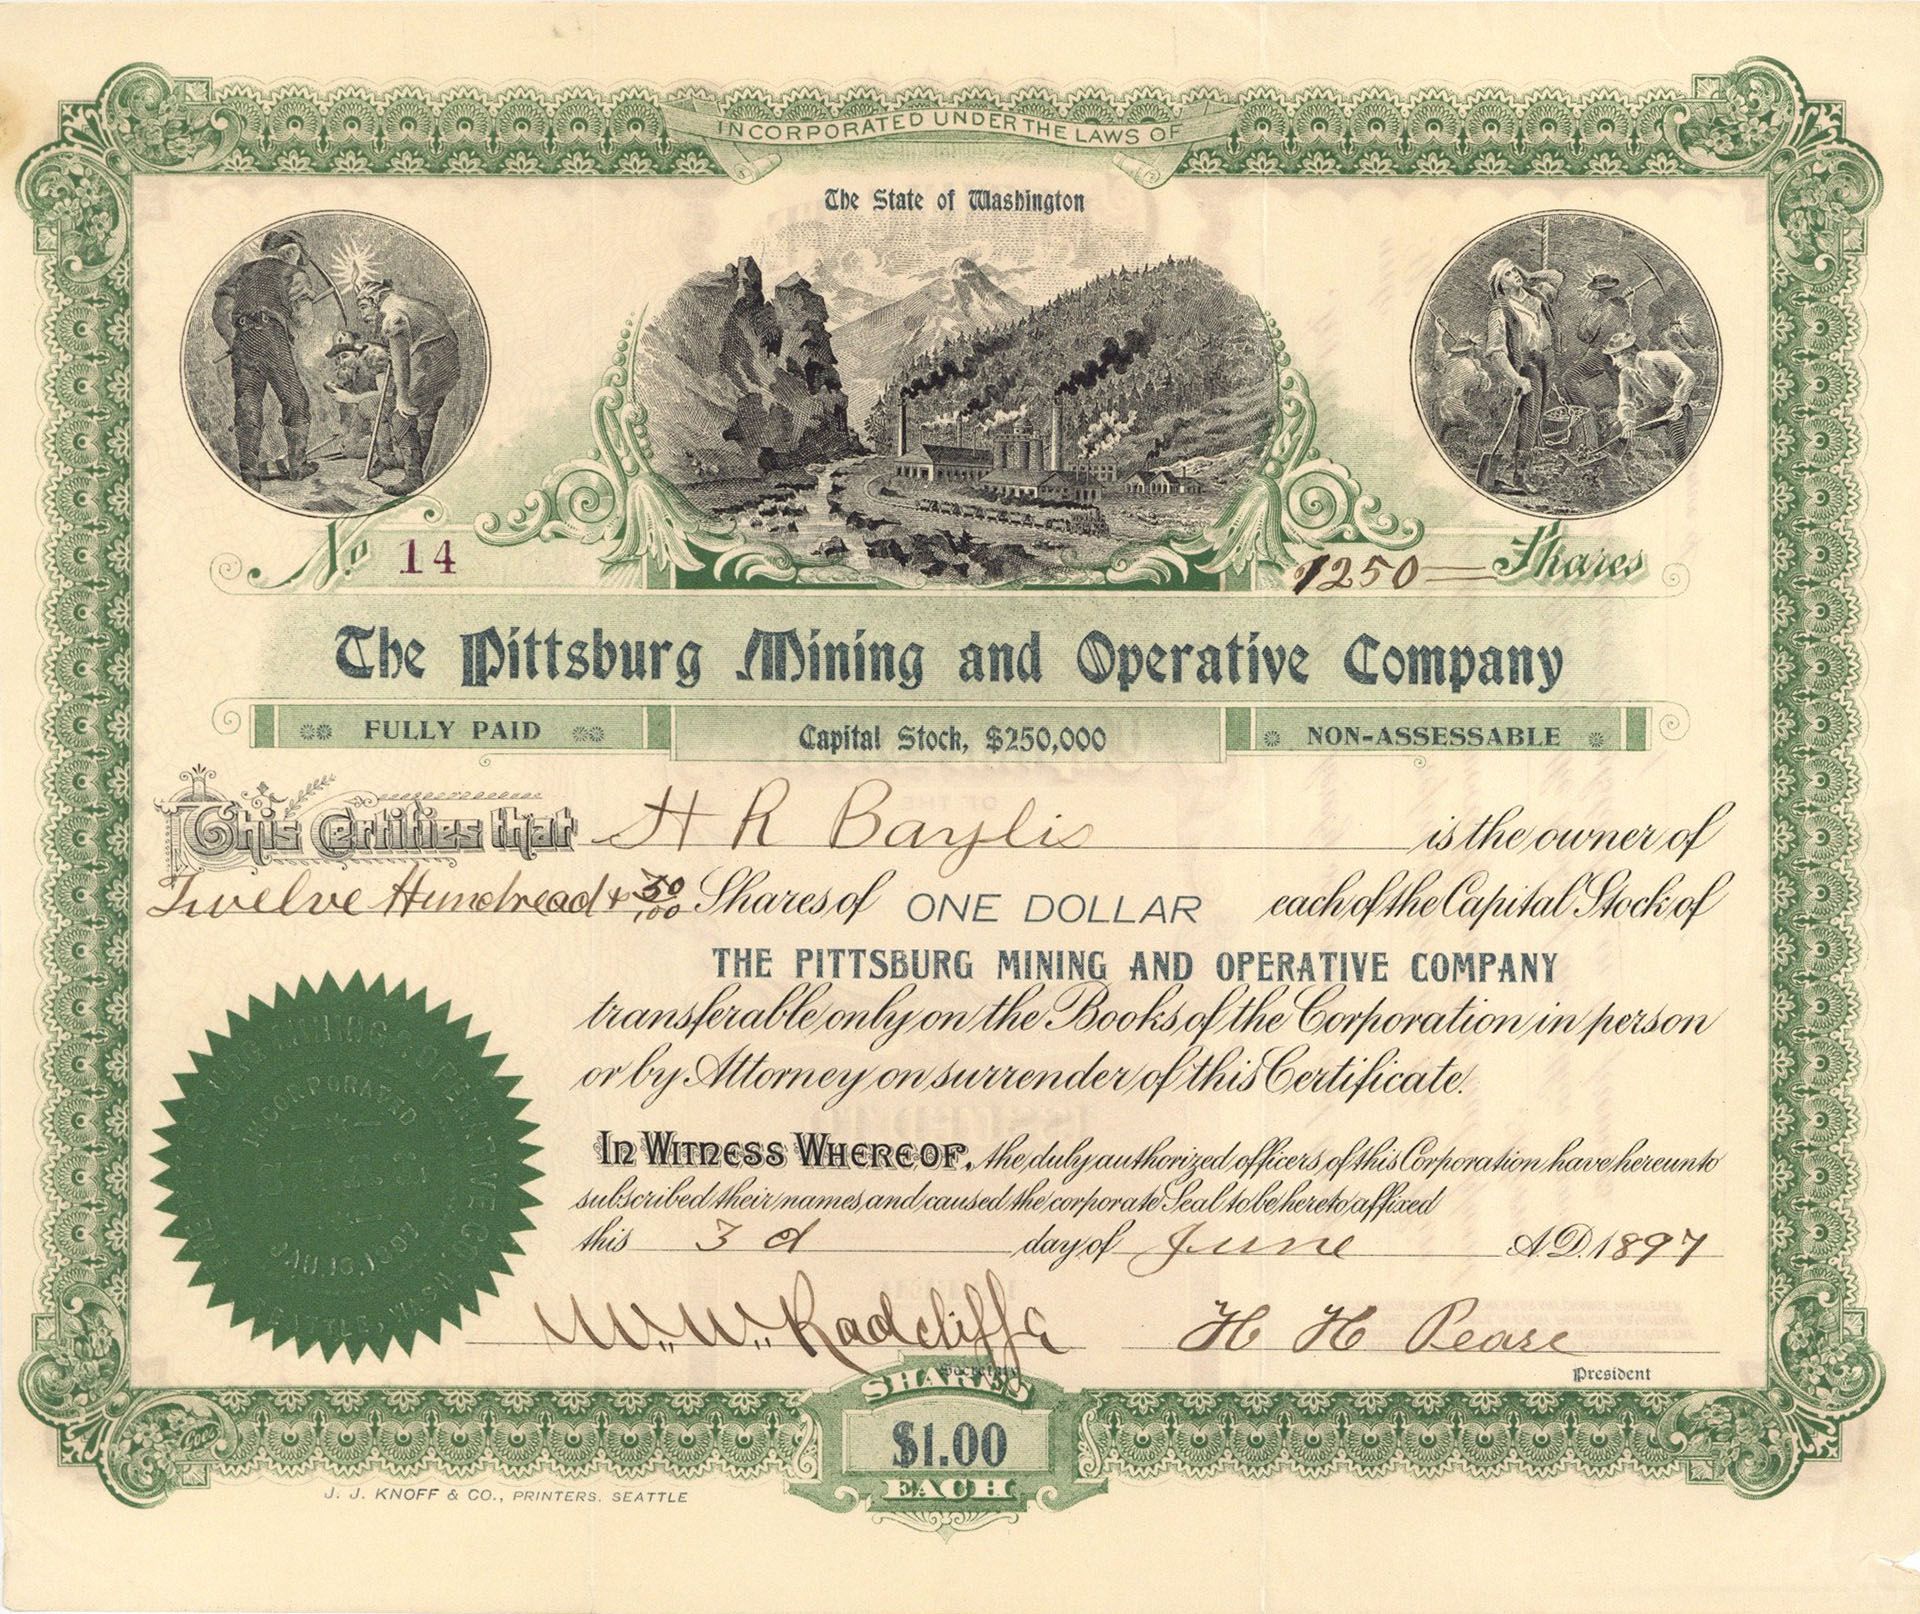 INCORPORATED UNDER THE LAWS OF
The State of Washington
No. 14
1250 Shares
The Pittsburg Mining and Operative Company
FULLY PAID
Capital Stock, $250,000
NON-ASSESSABLE
This Certifies that H R Baylis is the owner of
Twelve Hundread + 50/100 Shares of ONE DOLLAR each of the Capital Stock of
THE PITTSBURG MINING AND OPERATIVE COMPANY
transferable only on the Books of the Corporation in person
or by Attorney on surrender of this Certificate.
In Witness Whereof, the duly authorized officers of this Corporation have hereunto
subscribed their names, and caused the corporate Seal to be hereto affixed
this 3 d day of June A.D. 1897
INCORPORATED
SEATTLE, WASH.
W. W. Radcliffe H H Pease
Secretary President
SHARES
$1.00
EACH
Goes
J. J. KNOFF & CO., PRINTERS, SEATTLE